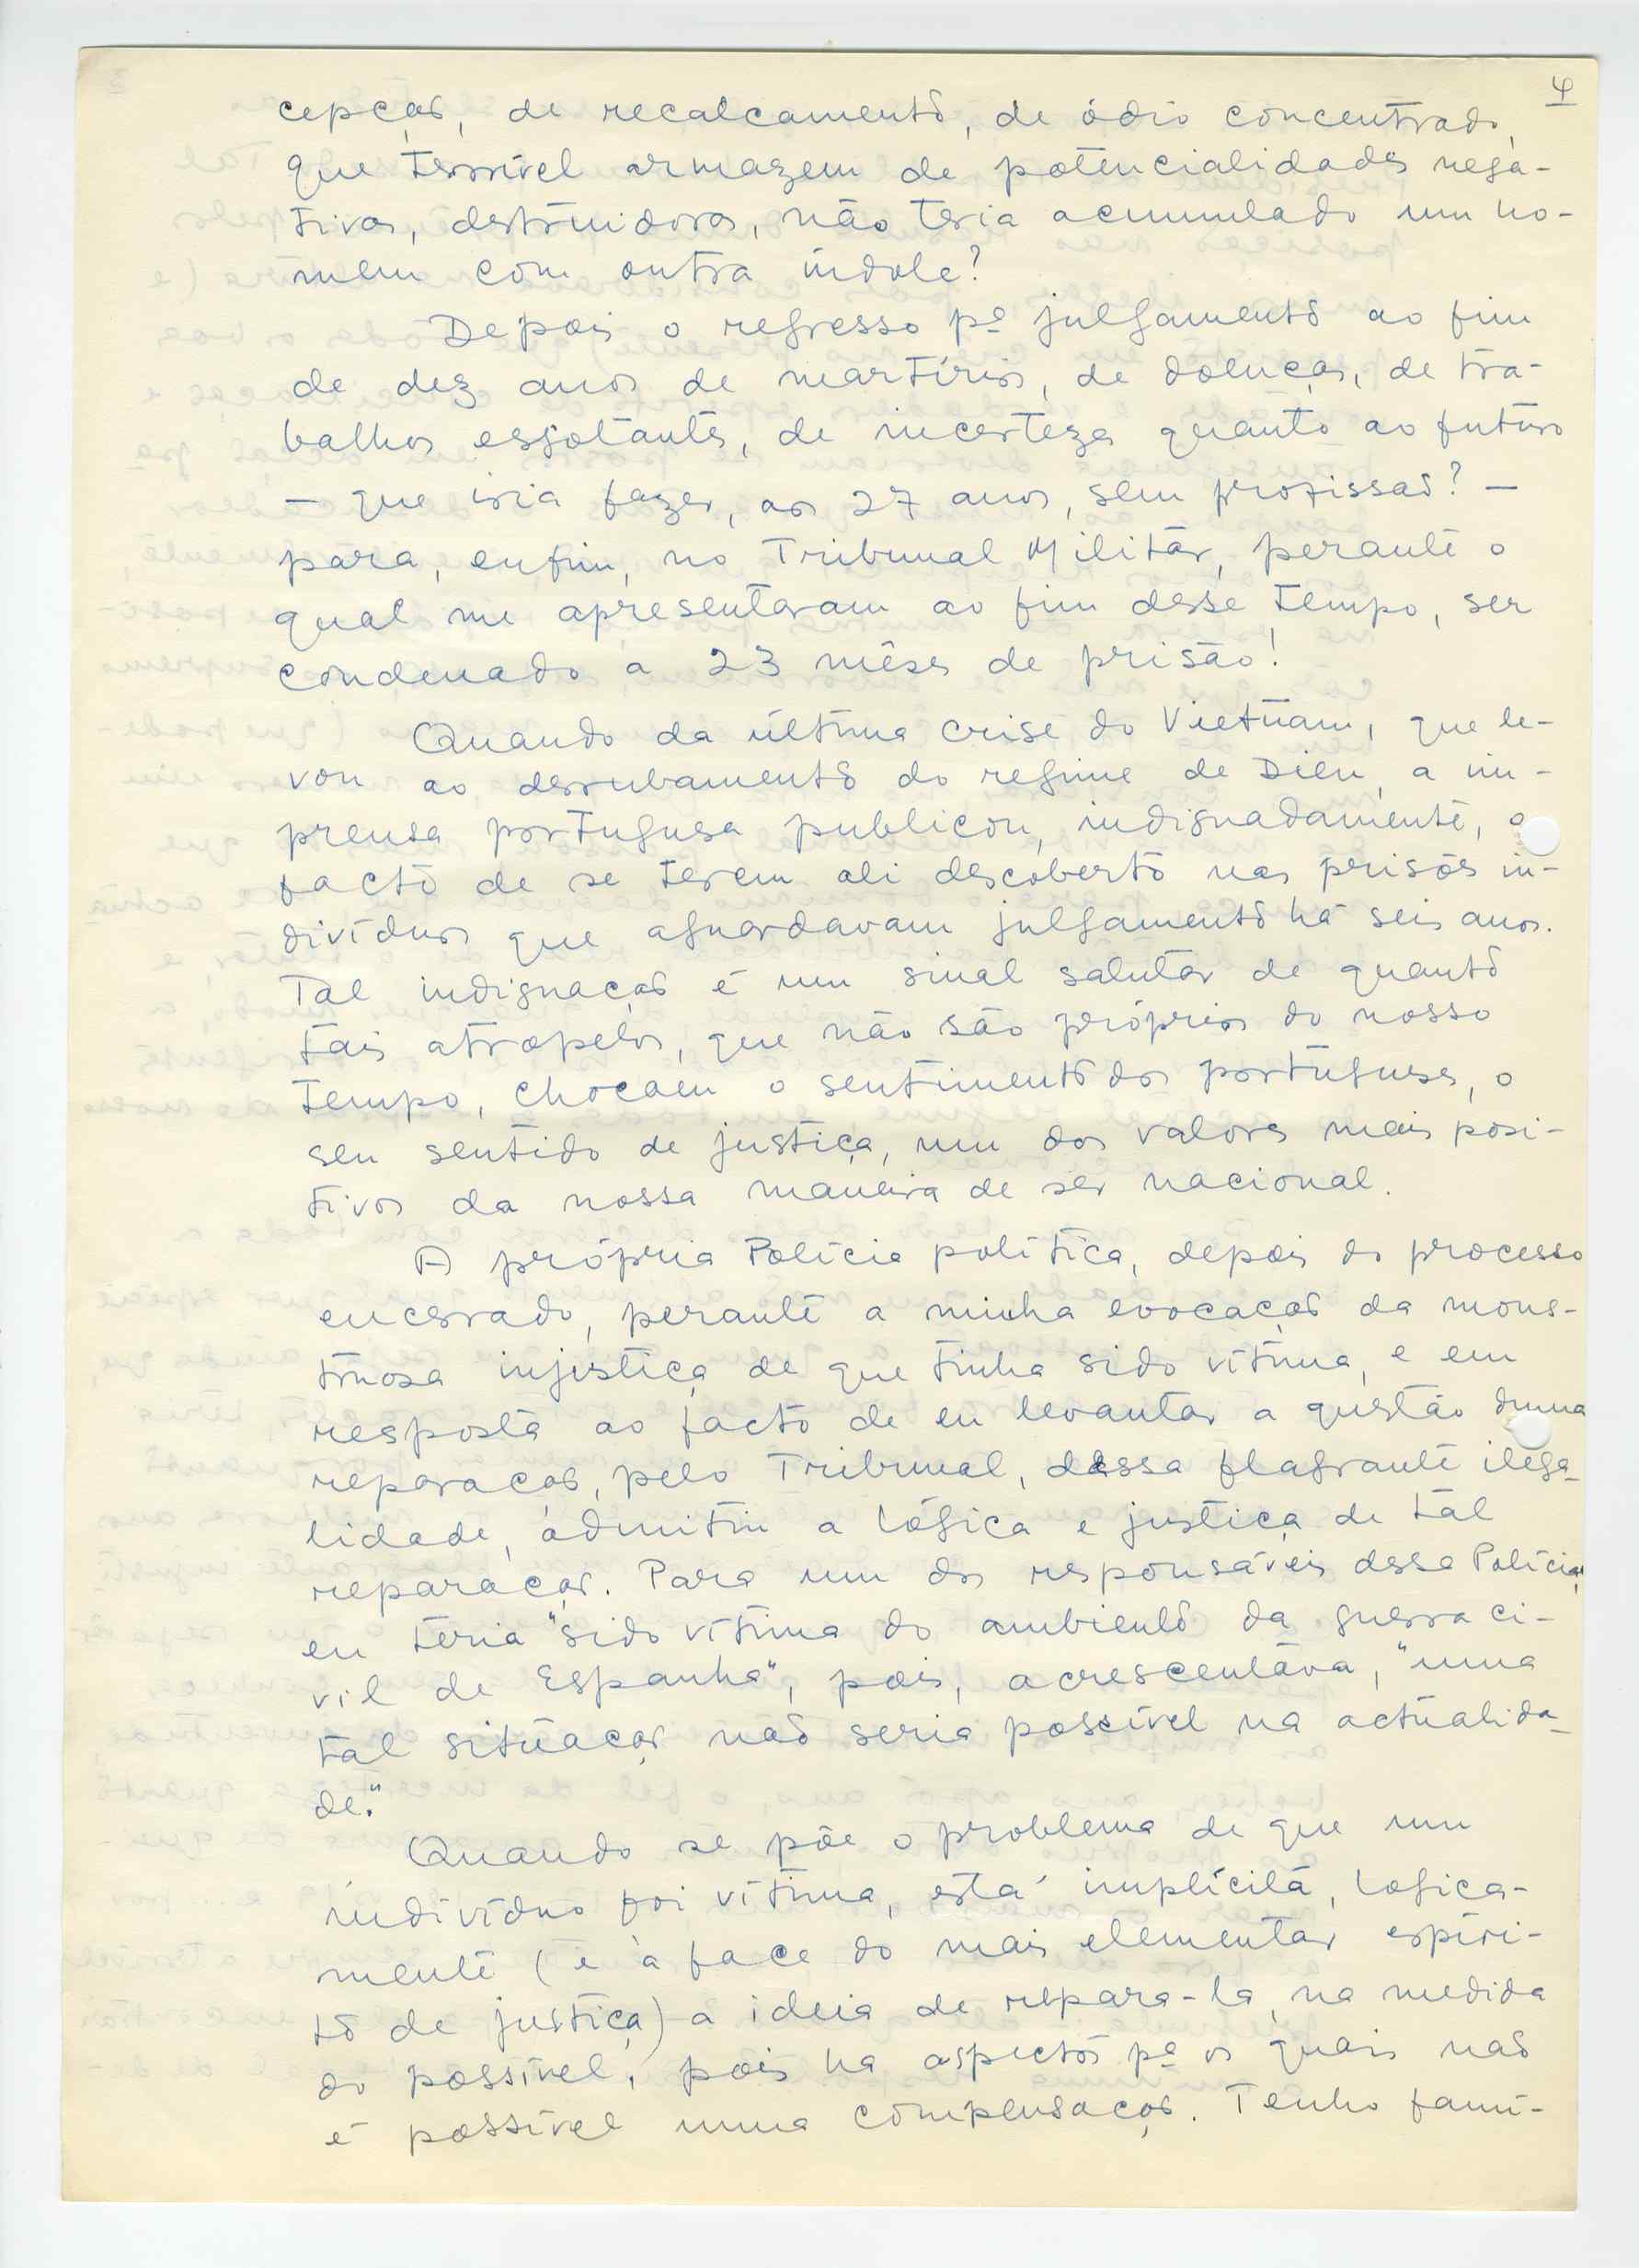 4
cepção, de recalcamento, de ódio concentrado,
que terrível armazem de potencialidades nega-
tivas, destruidoras, não teria acumulado um ho-
mem com outra índole?
Depois o regresso pª julgamento ao fim
de dez anos de martírios, de doenças, de tra-
balhos esgotantes, de incertezas quanto ao futuro
— que iria fazer, aos 27 anos, sem profissão? —
para, enfim, no Tribunal Militar, perante o
qual me apresentaram ao fim desse tempo, ser
condenado a 23 mêses de prisão!
Quando da última crise do Vietnam, que le-
vou ao derrubamento do regime de Diem, a im-
prensa portuguesa publicou, indignadamente, o
facto de se terem ali descoberto nas prisões in-
divíduos que aguardavam julgamento há seis anos.
Tal indignação é um sinal salutar de quanto
tais atropelos, que não são próprios do nosso
tempo, chocam o sentimento dos portugueses, o
seu sentido de justiça, um dos valores mais posi-
tivos da nossa maneira de ser nacional.
A própria Polícia política, depois do processo
encerrado, perante a minha evocação da mons-
truosa injustiça de que tinha sido vítima, e em
resposta ao facto de eu levantar a questão duma
reparação, pelo Tribunal, dessa flagrante ilega-
lidade, admitiu a lógica e justiça de tal
reparação. Para um dos responsáveis dessa Polícia,
eu teria "sido vítima do ambiente da guerra ci-
vil de Espanha", pois, acrescentava, "uma
tal situação não seria possível na actualida-
de."
Quando se põe o problema de que um
indivíduo foi vítima, está implícita, logica-
mente (e à face do mais elementar espíri-
to de justiça) a ideia de repara-la, na medida
do possível, pois ha aspectos pª os quais não
é possível uma compensação. Tenho famí-